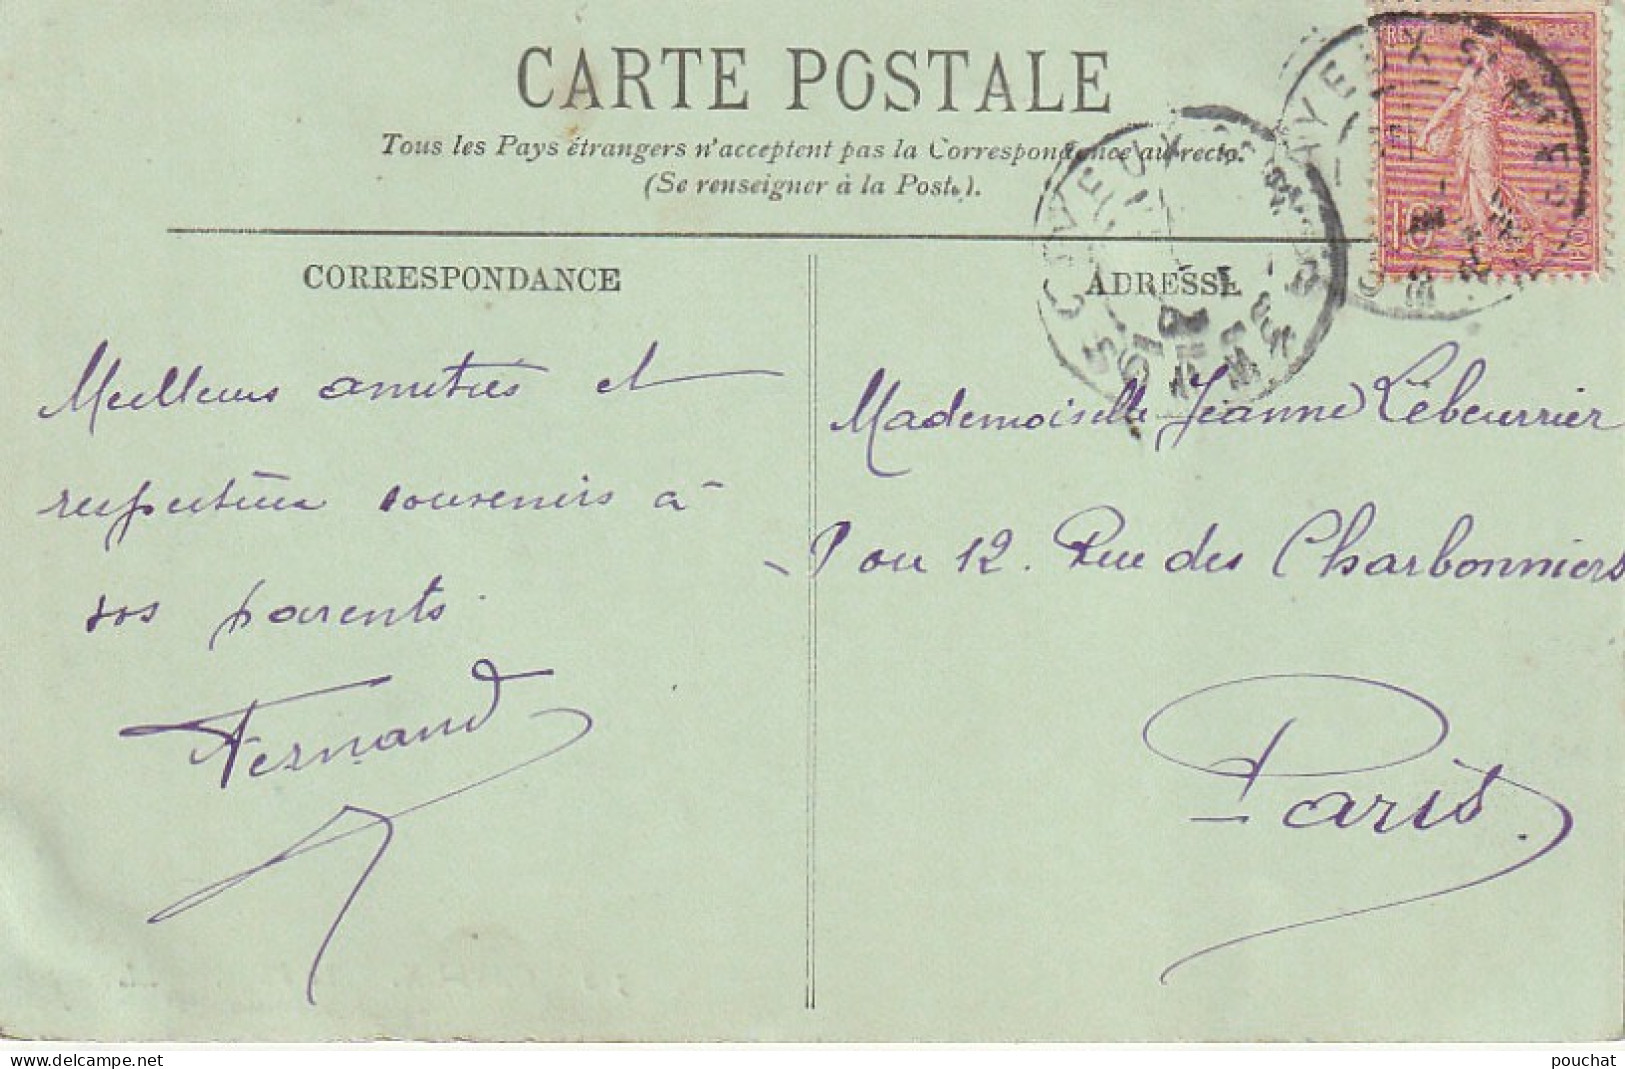 CARTE POSTALE
Tous les Pays étrangers n'acceptent pas la Correspondance au recto.
(Se renseigner à la Poste).
CORRESPONDANCE
ADRESSE
Meilleures amitiés et
respectueux souvenirs à
vos parents.
Fernand
Mademoiselle Jeanne Lebeurrier
ou 12. Rue des Charbonniers
Paris.
10
www.delcampe.net
pouchat